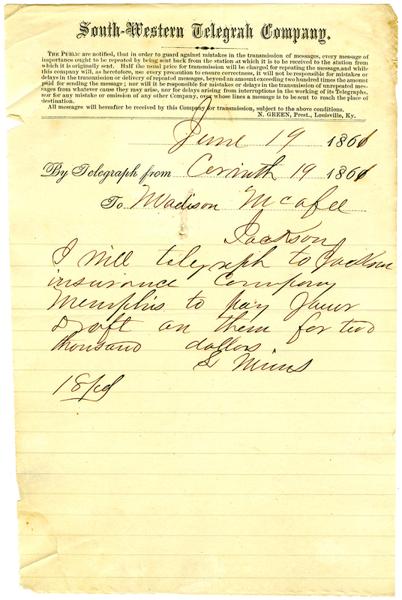 South-Western Telegrah Company.
THE PUBLIC are notified, that in order to guard against mistakes in the transmission of messages, every message of
importance ought to be repeated by being sent back from the station at which it is to be received to the station from
which it is originally sent. Half the usual price for transmission will be charged for repeating the message, and while
this company will, as heretofore, use every precaution to ensure correctness, it will not be responsible for mistakes or
delays in the transmission or delivery of repeated messages, beyond an amount exceeding two hundred times the amount
paid for sending the message; nor will it be responsible for mistakes or delays in the transmission of unrepeated mess-
ages from whatever cause they may arise, nor for delays arising from interruptions in the working of its Telegraphs,
nor for any mistake or omission of any other Company, over whose lines a message is to be sent to reach the place of
destination.
All messages will hereafter be received by this Company for transmission, subject to the above conditions.
N. GREEN, Prest., Louisville, Ky.
June 19 1861
By Telegraph from Corinth 19 1861
To Madison McAfee
Jackson
I will telegraph to Jackson
insurance Company
Memphis to pay your
draft on them for two
thousand dollars
Mims
18/pd